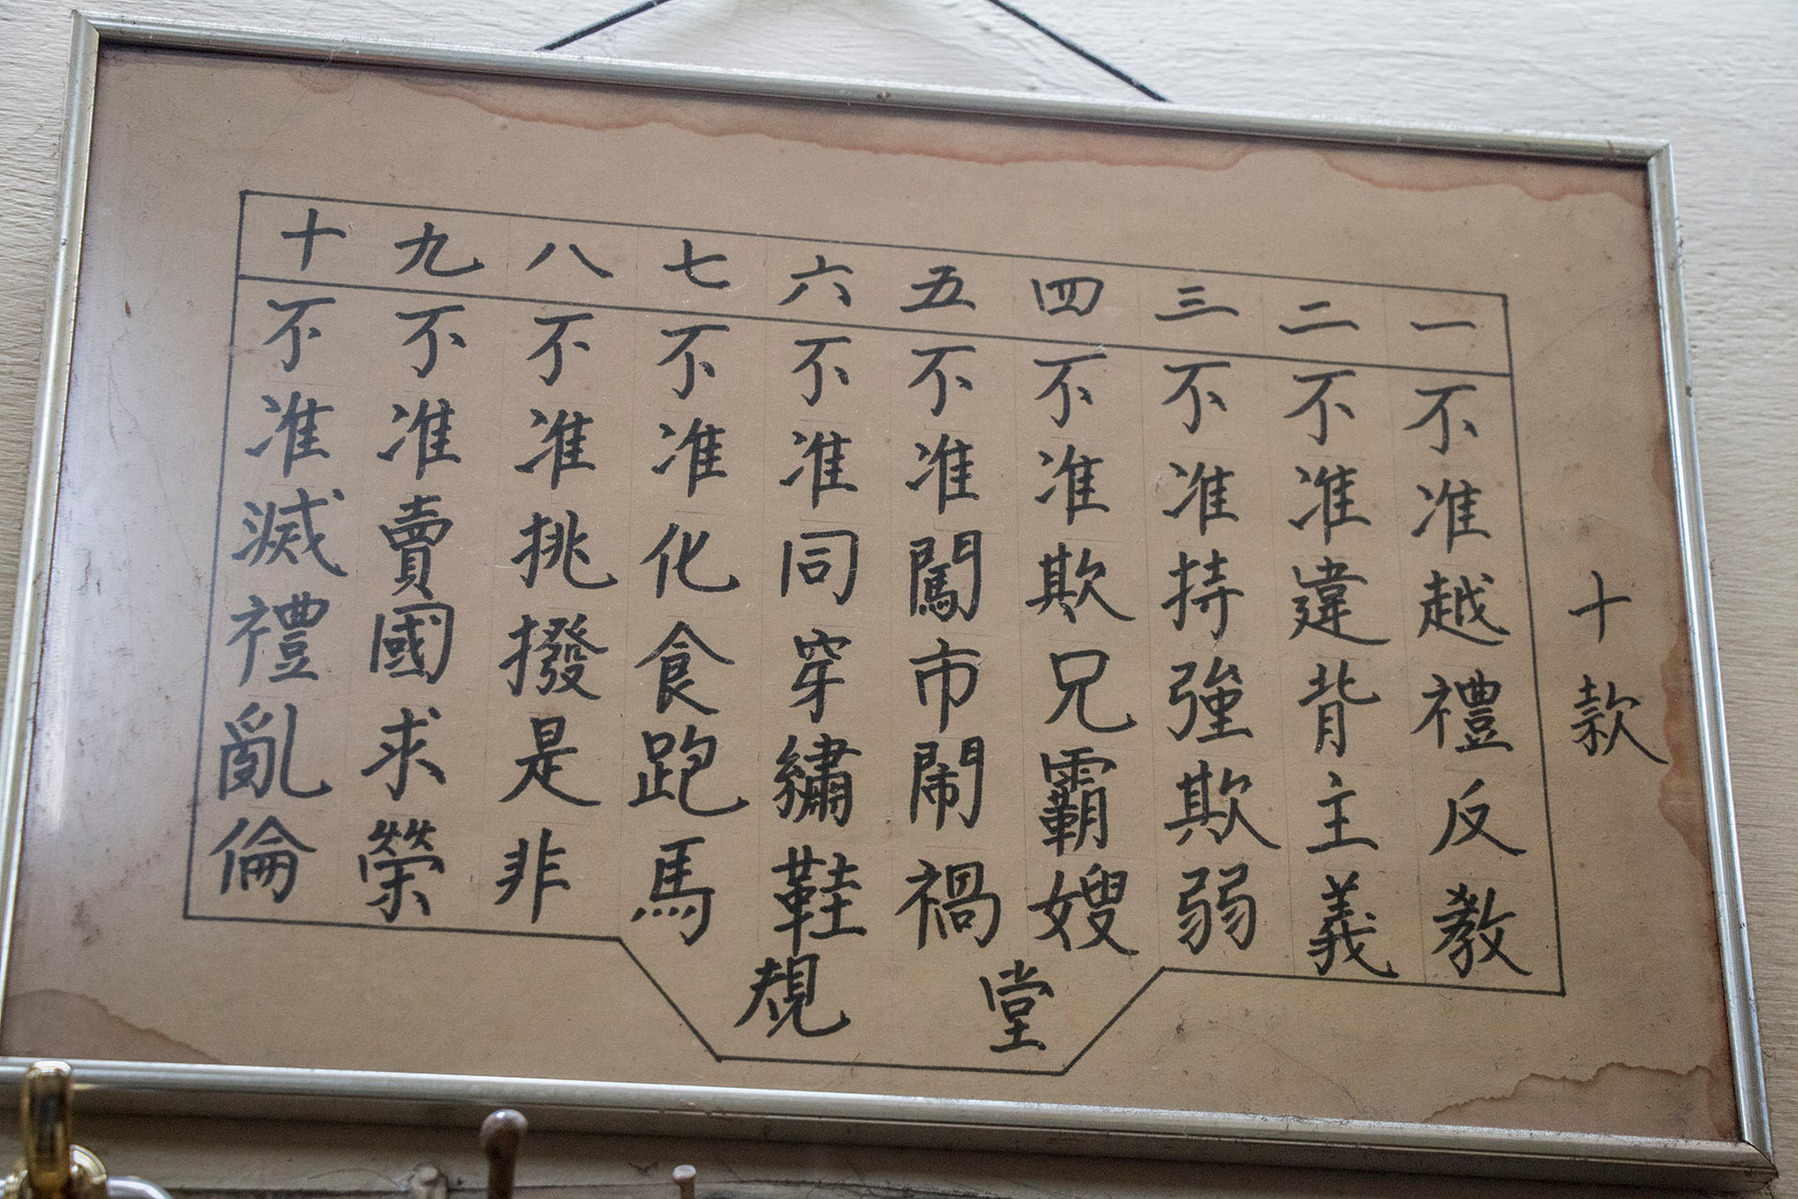 十款
一 不准越禮反教
二 不准違背主義
三 不准持強欺弱
四 不准欺兄霸嫂
五 不准闖市鬧禍
六 不准同穿繡鞋
七 不准化食跑馬
八 不准挑撥是非
九 不准賣國求榮
十 不准滅禮亂倫
堂規